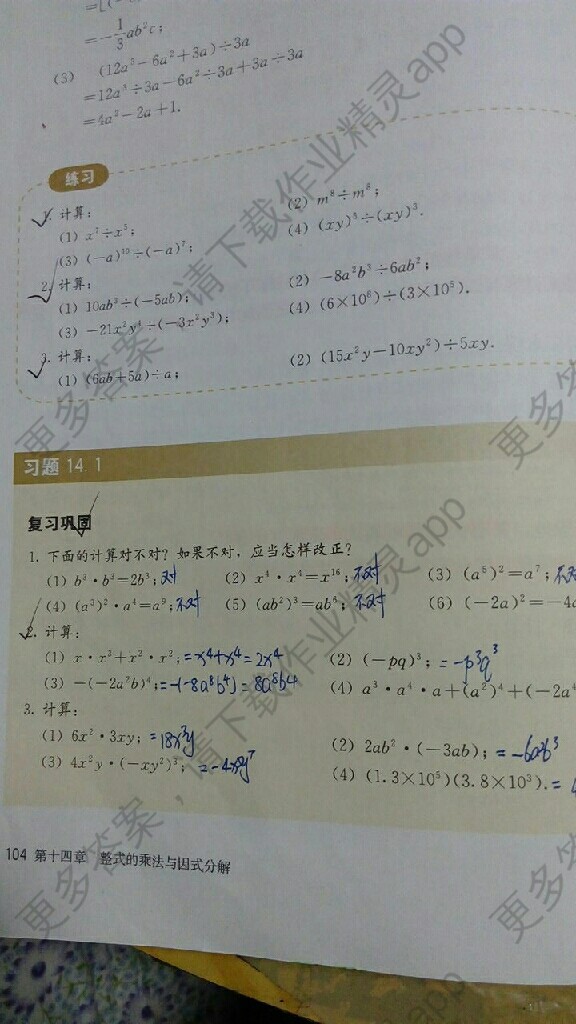 =[(-
=-1/3ab²c;
(3) (12a³-6a²+3a)÷3a
=12a³÷3a-6a²÷3a+3a÷3a
=4a²-2a+1.
练习
1. 计算:
(1) x⁷÷x⁵; (2) m⁸÷m⁸;
(3) (-a)¹⁰÷(-a)⁷; (4) (xy)⁵÷(xy)³.
2. 计算:
(1) 10ab³÷(-5ab); (2) -8a²b³÷6ab²;
(3) -21x²y⁴÷(-3x²y³); (4) (6×10⁸)÷(3×10⁵).
3. 计算:
(1) (6ab+5a)÷a; (2) (15x²y-10xy²)÷5xy.
习题 14.1
复习巩固
1. 下面的计算对不对?如果不对,应当怎样改正?
(1) b³·b³=2b³;对 (2) x⁴·x⁴=x¹⁶;不对 (3) (a⁵)²=a⁷;不对
(4) (a³)²·a⁴=a⁹;不对 (5) (ab²)³=ab⁶;不对 (6) (-2a)²=-4a
2. 计算:
(1) x·x³+x²·x²;=x⁴+x⁴=2x⁴ (2) (-pq)³;=-p³q³
(3) -(-2a²b)⁴;=-(-8a⁸b⁴)=8a⁸b⁴ (4) a³·a⁴·a+(a²)⁴+(-2a⁴
3. 计算:
(1) 6x²·3xy;=18x³y (2) 2ab²·(-3ab);=-6a²b³
(3) 4x²y·(-xy²)³;=-4x⁵y⁷ (4) (1.3×10⁵)(3.8×10³).=
104 第十四章 整式的乘法与因式分解
更多答案,请下载作业精灵app
更多答案,请下载作业精灵app
更多答
更多答